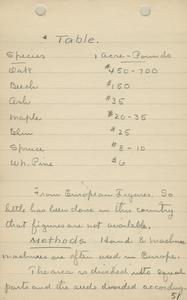 Table.
Species 1 acre - Pounds
Oak #450-700
Beech #150
Ash #35
Maple #20-35
Elm #25
Spruce #8-10
Wh. Pine #6
From European Figures. So
little has been done in this country
that figures are not available.
Methods Hand & Machine
machines are often used in Europe.
The area is divided into equal
parts and the seeds divided according
51